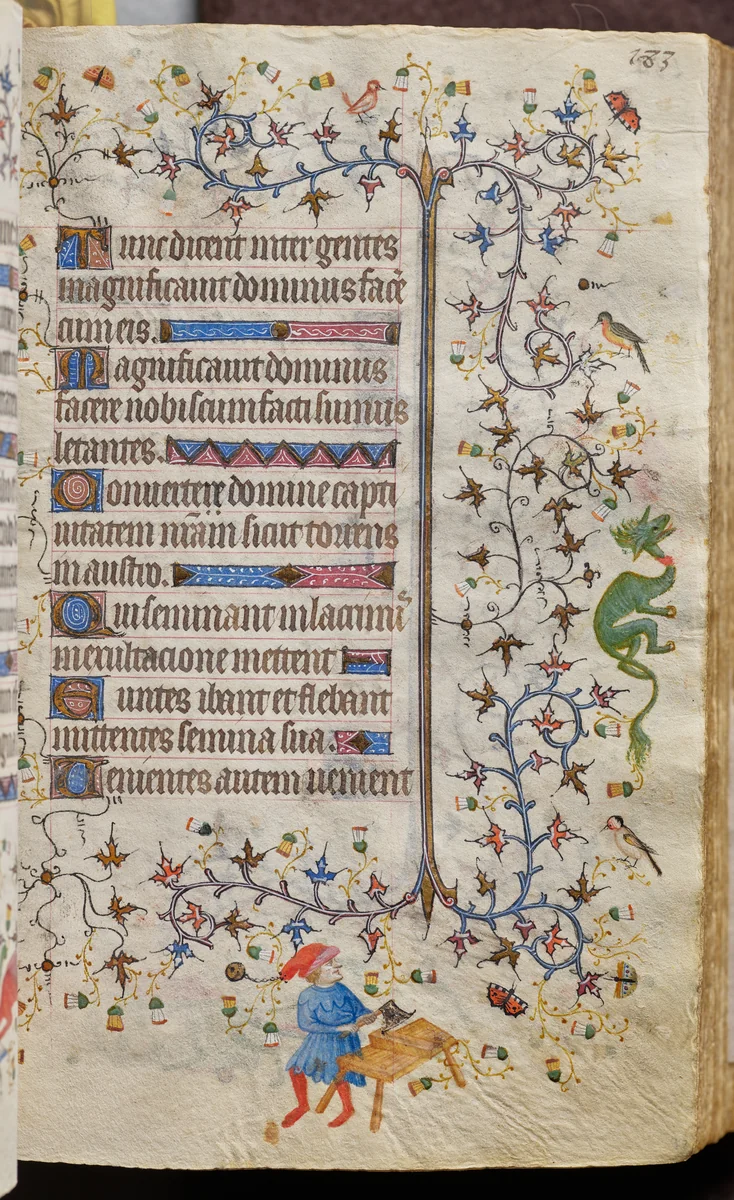 183
Tunc dicent inter gentes
magnificauit dominus facẽ
cum eis.
Magnificauit dominus
facere nobiscum facti sumus
letantes.
Conuertere domine capti
uitatem nr̃am sicut torrens
in austro.
Qui seminant in lacrimis̃
in exultacione metent
Euntes ibant et flebant
mittentes semina sua.
Uenientes autem uenient